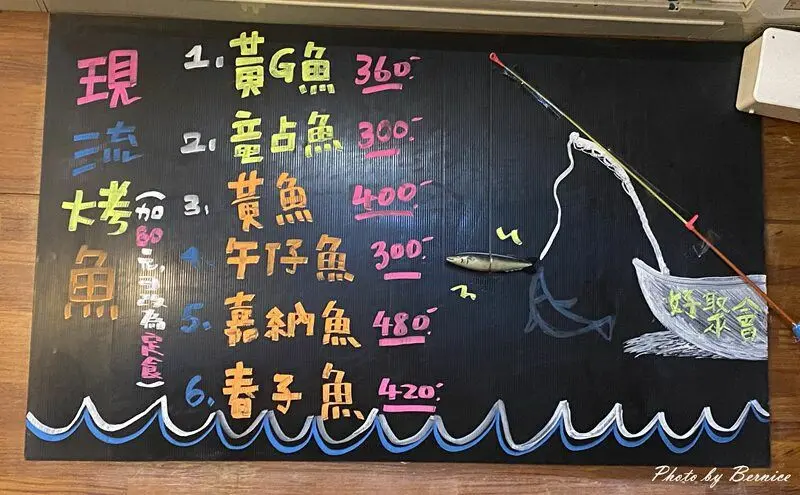 現流烤魚
(加80元可改為定食)
1. 黃G魚 360.-
2. 竜占魚 300.-
3. 黃魚 400.-
4. 午仔魚 300.-
5. 嘉納魚 480.-
6. 春子魚 420.-
好聚會
Photo by Bernice